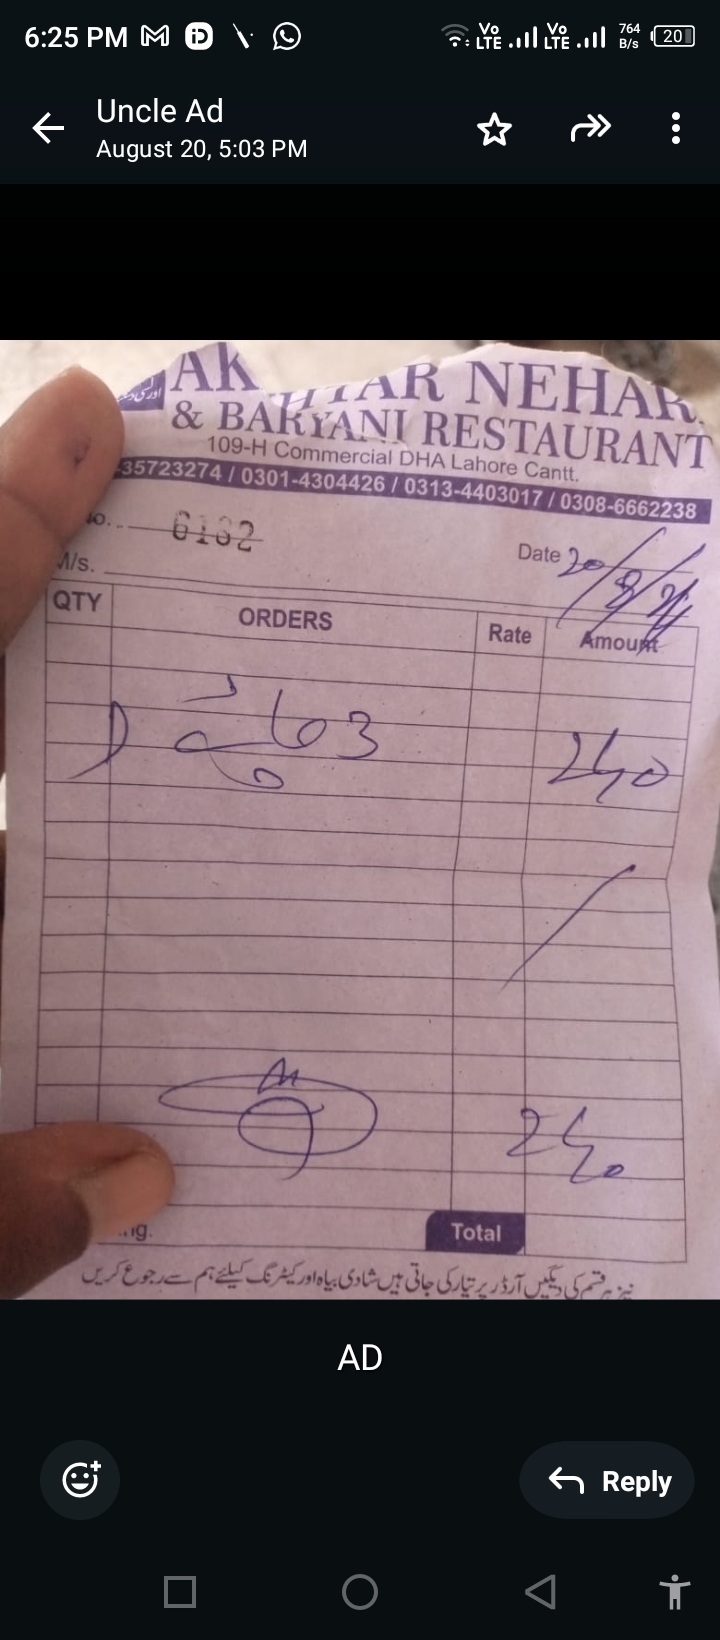 6:25 PM Vo LTE Vo LTE 764 B/s 20
Uncle Ad
August 20, 5:03 PM
AKHTAR NEHAR
& BARYANI RESTAURANT
109-H Commercial DHA Lahore Cantt.
35723274 / 0301-4304426 / 0313-4403017 / 0308-6662238
No. 6132
Date 20/8/
M/s.
QTY ORDERS Rate Amount
3 240
240
Total
نیز ہر قسم کی دیگیں آرڈر پر تیار کی جاتی ہیں شادی بیاہ اور کیٹرنگ کیلئے ہم سے رجوع کریں
AD
Reply